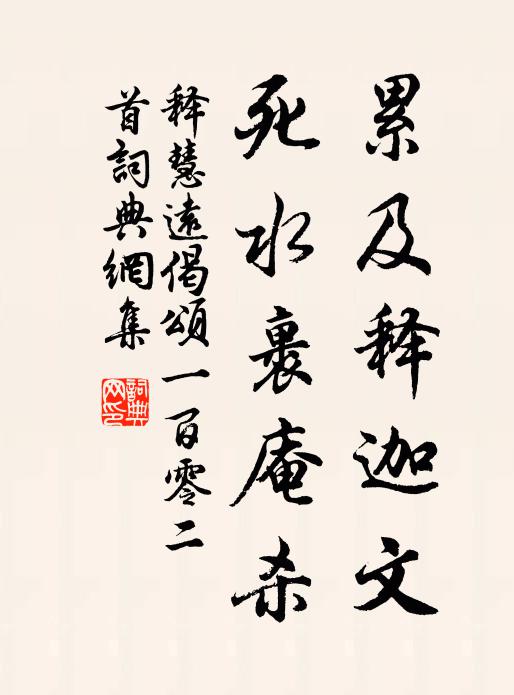 累及释迦文
死水裹庵杀
释慧遠偈頌一百零二
首詞典網集
詞典网印